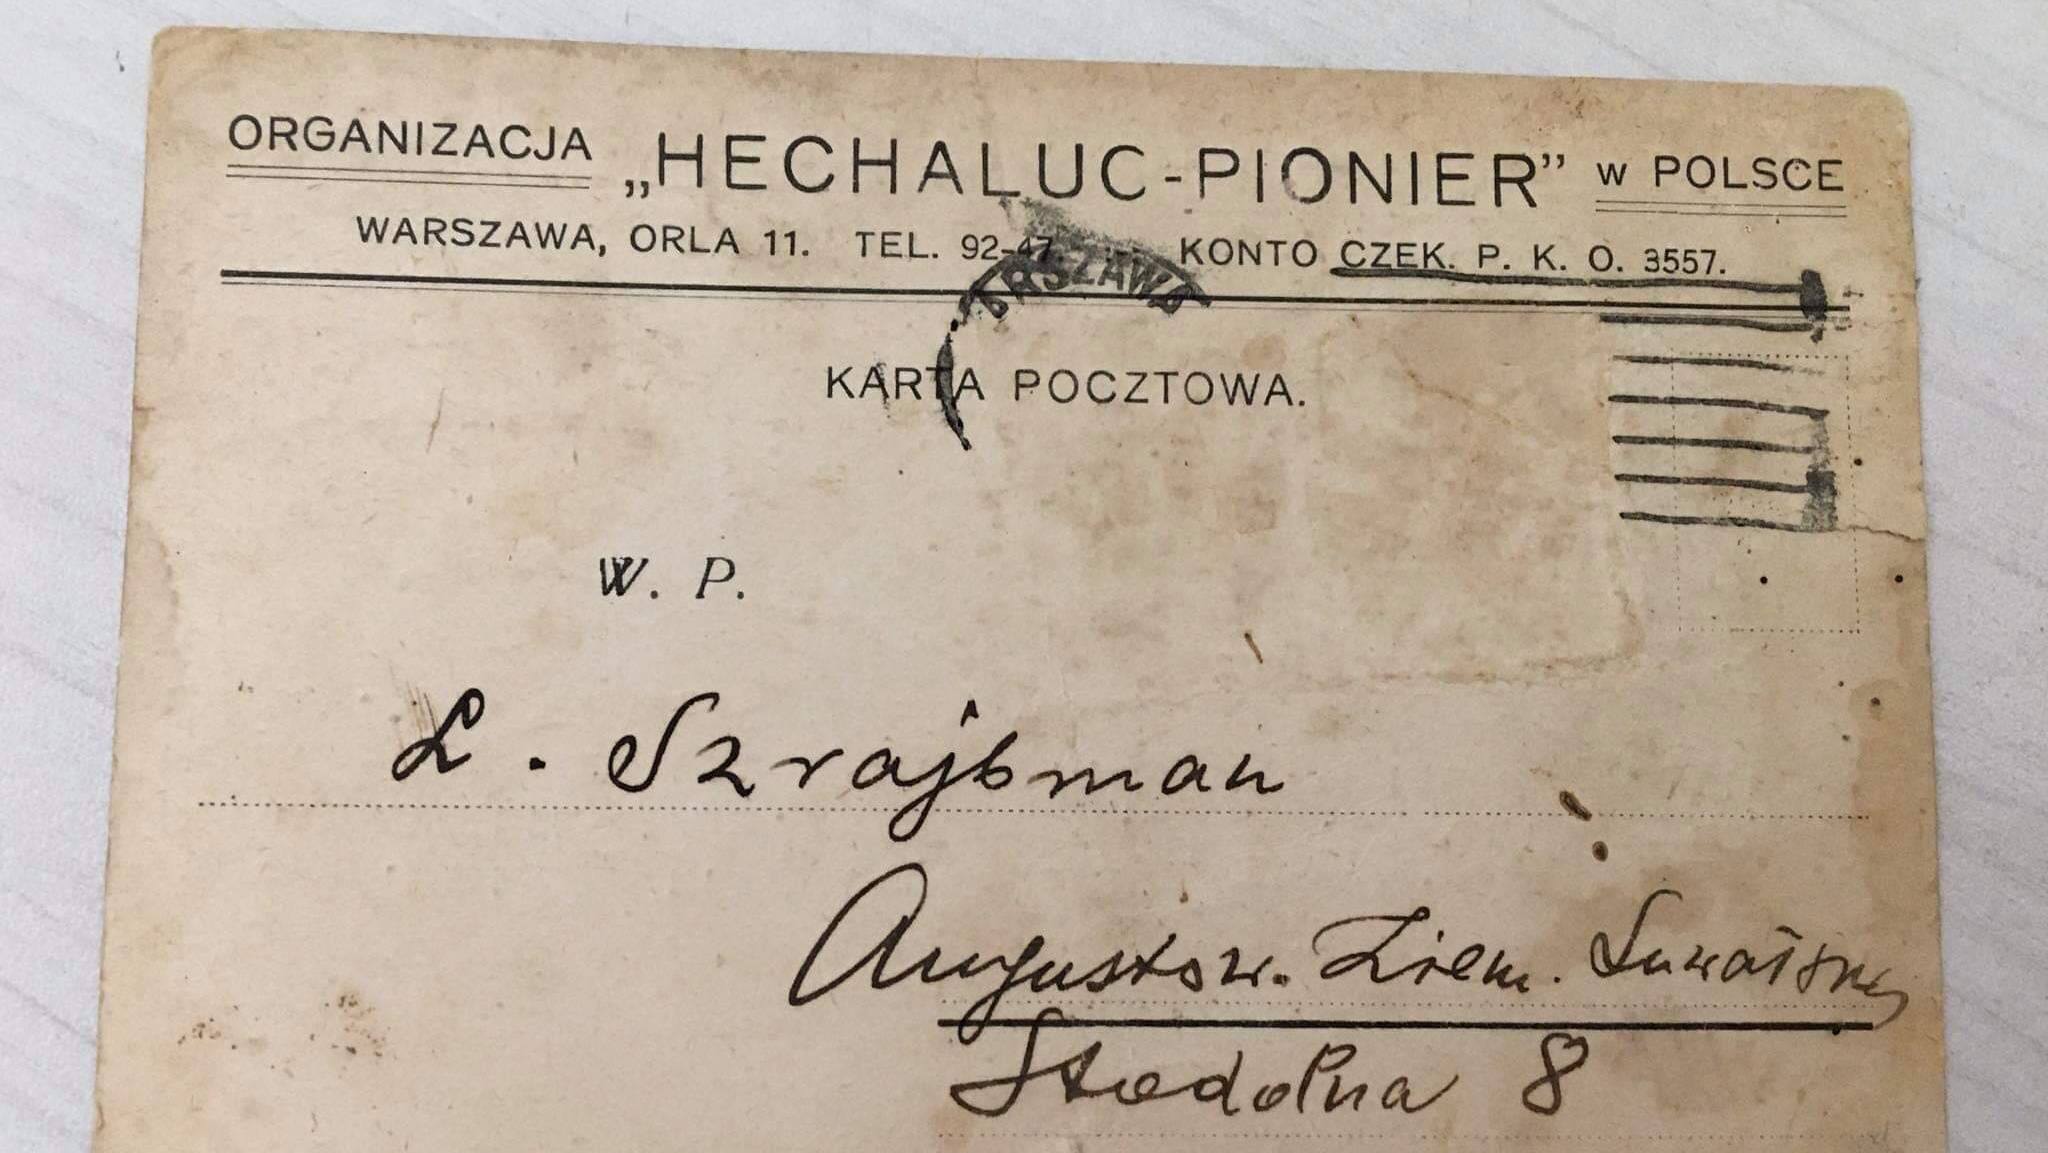 ORGANIZACJA „HECHALUC-PIONIER” w POLSCE
WARSZAWA, ORLA 11. TEL. 92-47. KONTO CZEK. P. K. O. 3557.
WARSZAWA
KARTA POCZTOWA.
W. P.
L. Szrajbman
Augustow. Ziem. Suwalska
Stodolna 8